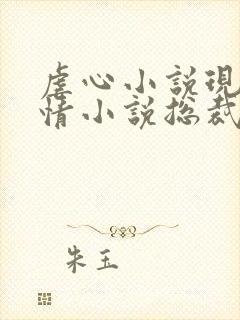 虐心小说现
情小说总裁
朱玉